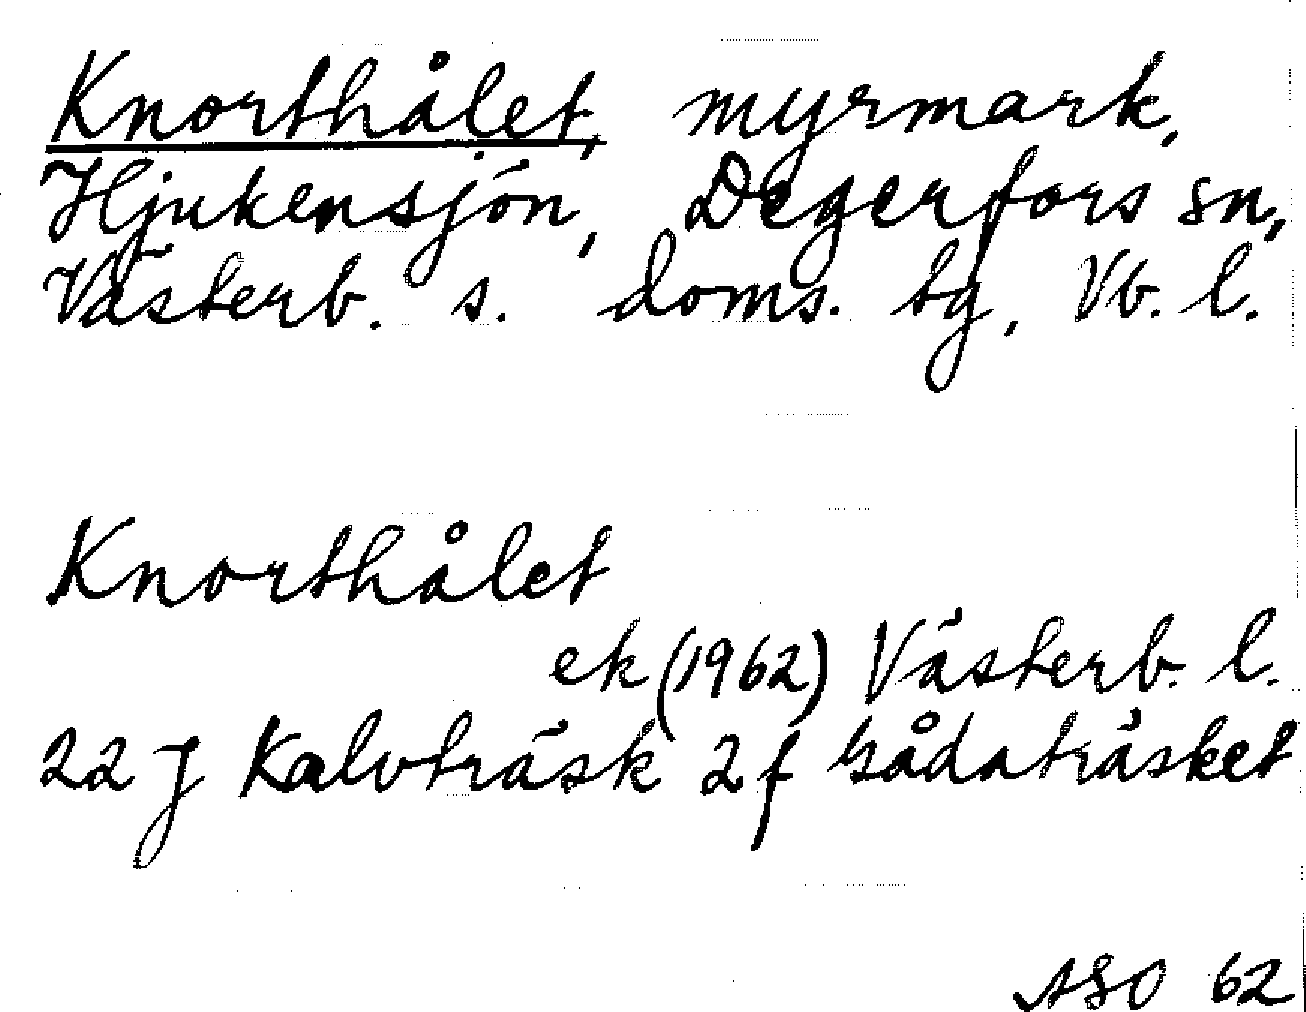 Knorthålet, myrmark,
Hjukensjön, Degerfors sn,
Västerb. s. doms. tg, Vb. l.
Knorthålet
ek (1962) Västerb. l.
22 J Kalvträsk 2 f Gådaträsket
ASO 62